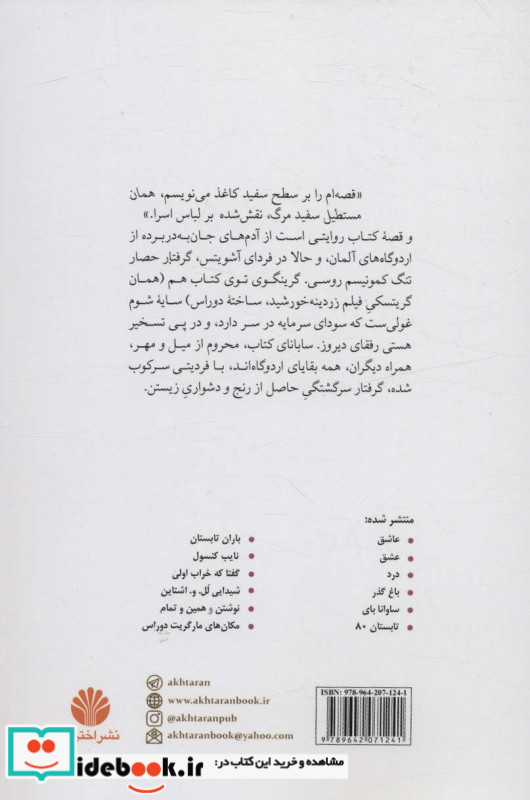 «قصه‌ام را بر سطح سفید کاغذ می‌نویسم، همان
مستطیل سفید مرگ، نقش‌شده بر لباس اسرا.»
و قصهٔ کتاب روایتی است از آدم‌های جان‌به‌دربرده از
اردوگاه‌های آلمان، و حالا در فردای آشویتس، گرفتار حصار
تنگ کمونیسم روسی. گرینگوی توی کتاب هم (همان
گریتسکیِ فیلم زردینه‌خورشید، ساختهٔ دوراس) سایهٔ شوم
غولی‌ست که سودای سرمایه در سر دارد، و در پی تسخیر
هستی رفقای دیروز. سابانای کتاب، محروم از میل و مهر،
همراه دیگران، همه بقایای اردوگاه‌اند، با فردیتی سرکوب
شده، گرفتار سرگشتگیِ حاصل از رنج و دشواریِ زیستن.
منتشر شده:
عاشق
عشق
درد
باغ گذر
ساوانا بای
تابستان ۸۰
باران تابستان
نایب کنسول
گفتا که خراب اولی
شیدایی لُل. و. اشتاین
نوشتن و همین و تمام
مکان‌های مارگریت دوراس
akhtaran
www.akhtaranbook.ir
@akhtaranpub
akhtaranbook@yahoo.com
ISBN: 978-964-207-124-1
9 789642 071241
نشر اختر
iidebook.ir
مشاهده و خرید این کتاب در: